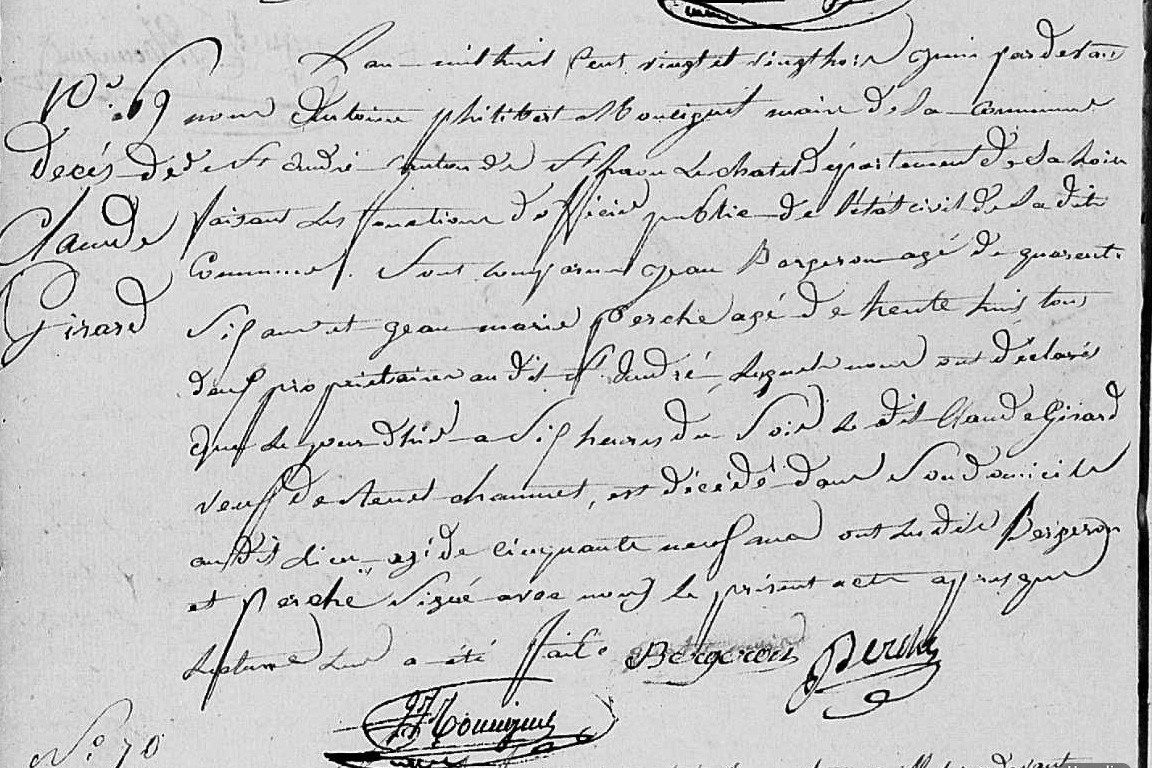 L'an mil huit cent vingt et vingt trois juin par devant
N.° 69 nous Antoine philibert Mouciguet maire de la commune
decés de de St andré canton de St haon Le chatel département de la Loire
Claude faisant les fonctions d'officier public de l'état civil de la dite
Commune. Sont comparu jean Bergeron agé de quarente
Girard Six ans et jean marie Perche agé de trente huit tous
deux propriétaires au dit St. André, lesquels nous ont déclarés
que le jour dhier a Six heures du Soir Le dit Claude Girard
veuf de chaumet, est décédé dans Son domicile
au dit lieu agé de cinquante neuf ans ont les dits Bergeron
et Perche Signé avec nous le présent acte apres que
lecture leur a été faite Bergeron Perche
Mouciguet
N.° 70